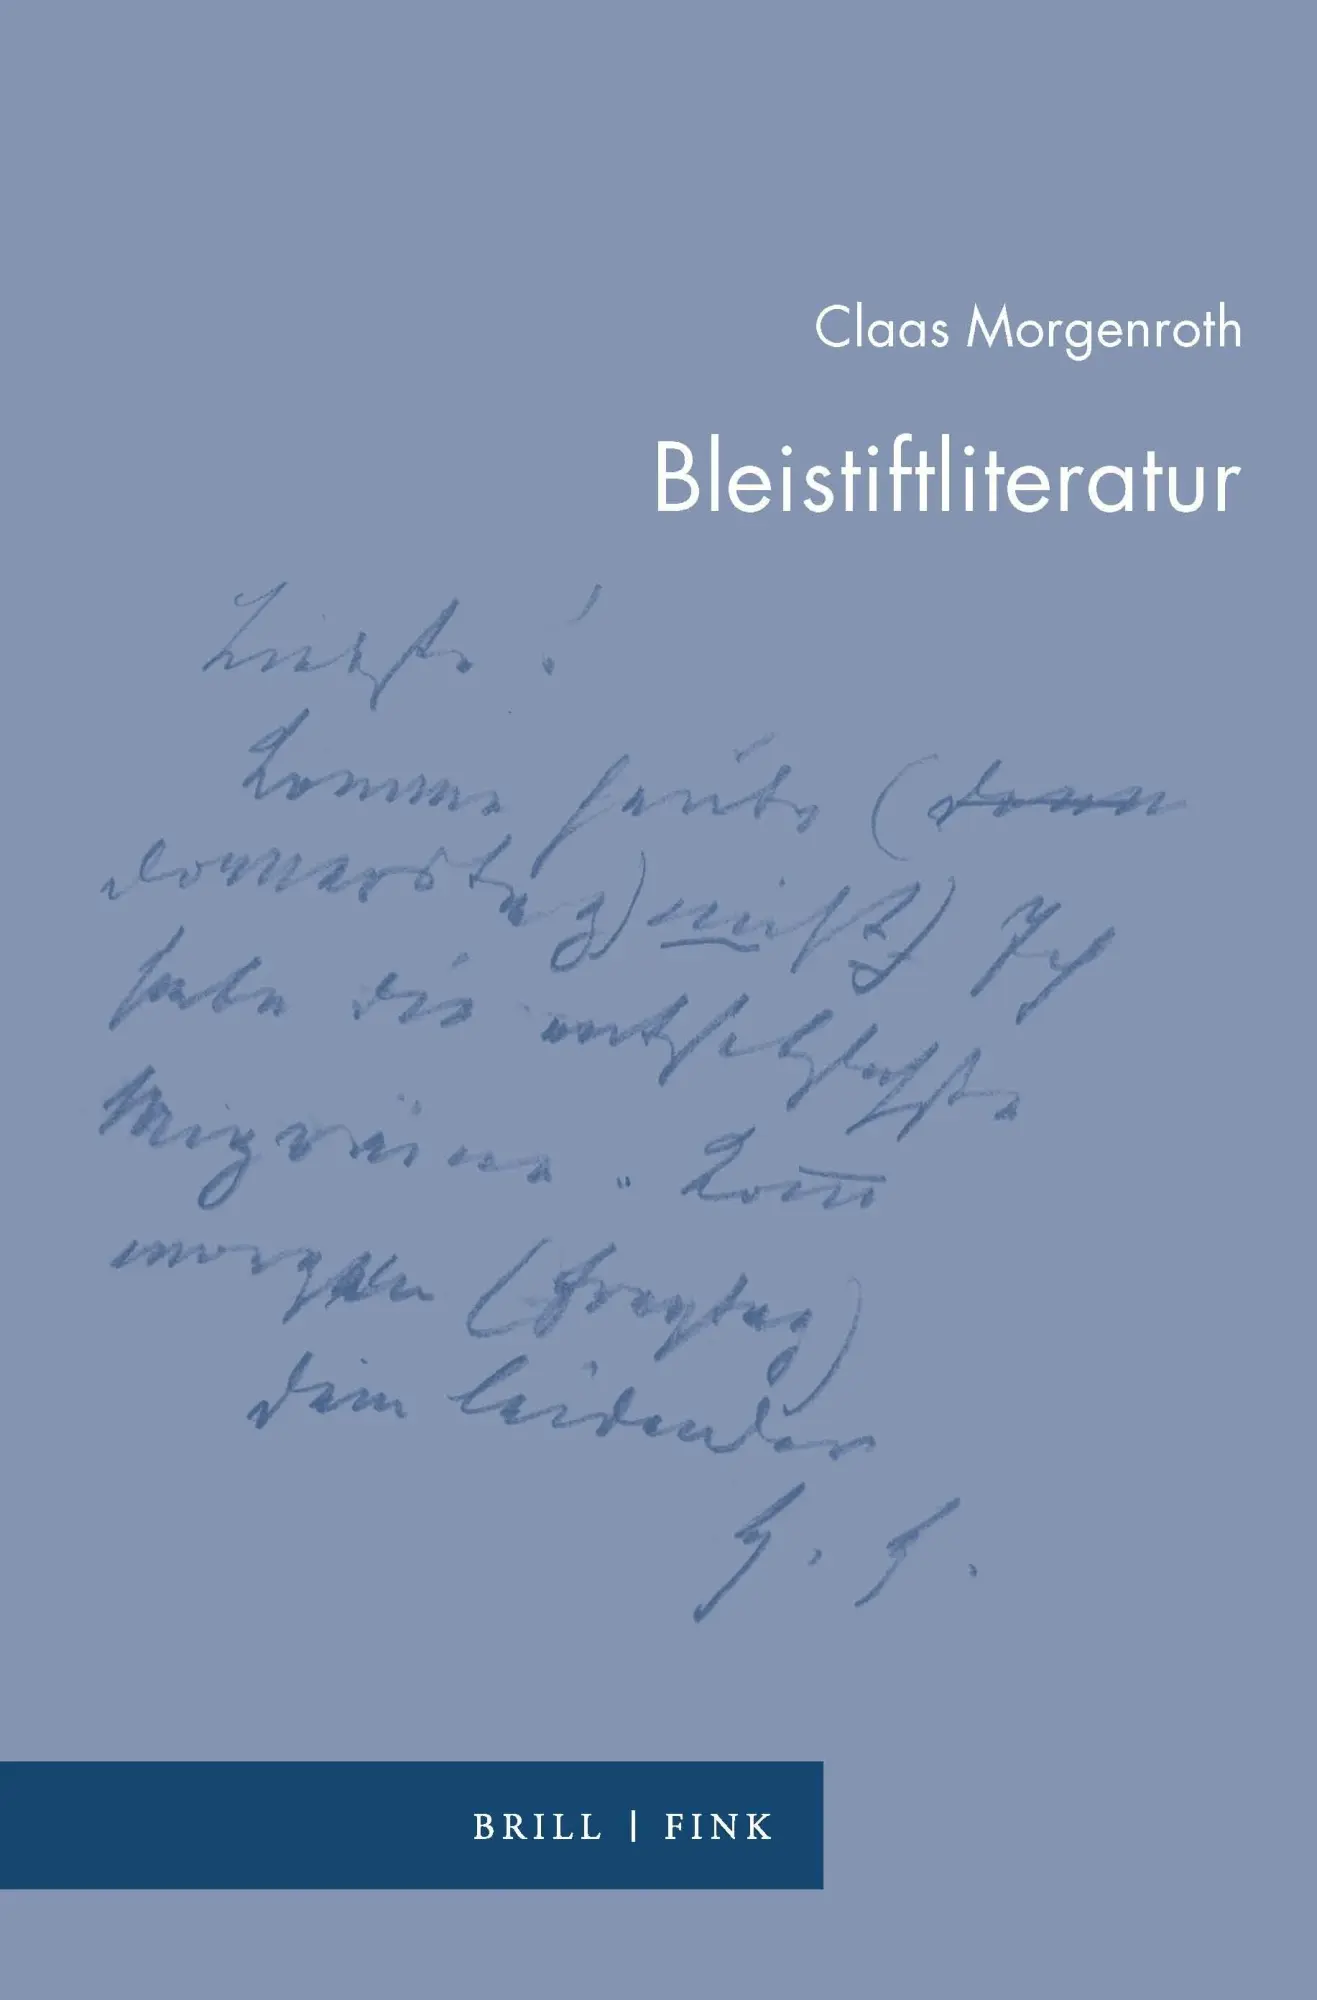 Claas Morgenroth
Bleistiftliteratur
Liebste!
Komme heute (dann
Donnerstag) nicht) Ich
habe die entsetzlichste
Migräne. Komm
morgen (Freytag)
Dein leidender
H. H.
BRILL | FINK